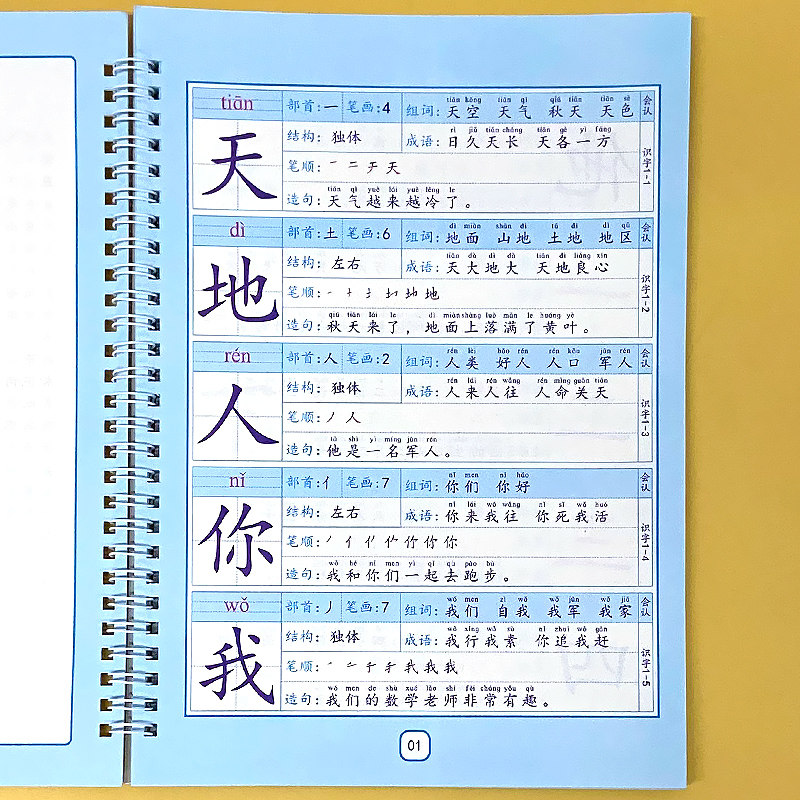 tiān
部首:一 笔画:4
tiān kōng tiān qì qiū tiān tiān sè
组词:天空 天气 秋天 天色
会认
天
结构:独体
rì jiǔ tiān cháng tiān gè yì fāng
成语:日久天长 天各一方
识字1-1
笔顺:一 二 チ 天
tiān qì yuè lái yuè lěng le
造句:天气越来越冷了。
dì
部首:土 笔画:6
dì miàn shān dì tǔ dì dì qū
组词:地面 山地 土地 地区
会认
地
结构:左右
tiān dà dì dà tiān dì liáng xīn
成语:天大地大 天地良心
识字1-2
笔顺:
地
qiū tiān lái le dì miàn shàng luò mǎn le huáng yè
造句:秋天来了，地面上落满了黄叶。
rén
部首:人 笔画:2
rén lèi hǎo rén rén kǒu jūn rén
组词:人类 好人 人口 军人
会认
人
结构:独体
rén lái rén wǎng rén mìng guān tiān
成语:人来人往 人命关天
识字1-3
笔顺:丿 人
tā shì yì míng jūn rén
造句:他是一名军人。
nǐ
部首:亻 笔画:7
nǐ men nǐ hǎo
组词:你们 你好
会认
你
结构:左右
nǐ lái wǒ wǎng nǐ sǐ wǒ huó
成语:你来我往 你死我活
识字1-4
笔顺:丿 亻 你
wǒ hé nǐ men yì qǐ qù pǎo bù
造句:我和你们一起去跑步。
wǒ
部首:丿 笔画:7
wǒ men zì wǒ wǒ jūn wǒ jiā
组词:我们 自我 我军 我家
会认
我
结构:独体
wǒ xíng wǒ sù nǐ zhuī wǒ gǎn
成语:我行我素 你追我赶
识字1-5
笔顺:我
wǒ men de shù xué lǎo shī fēi cháng yǒu qù
造句:我们的数学老师非常有趣。
01